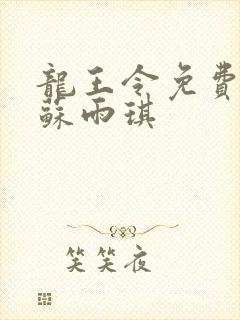 龍王令免費
蘇雨琪
笑笑夜